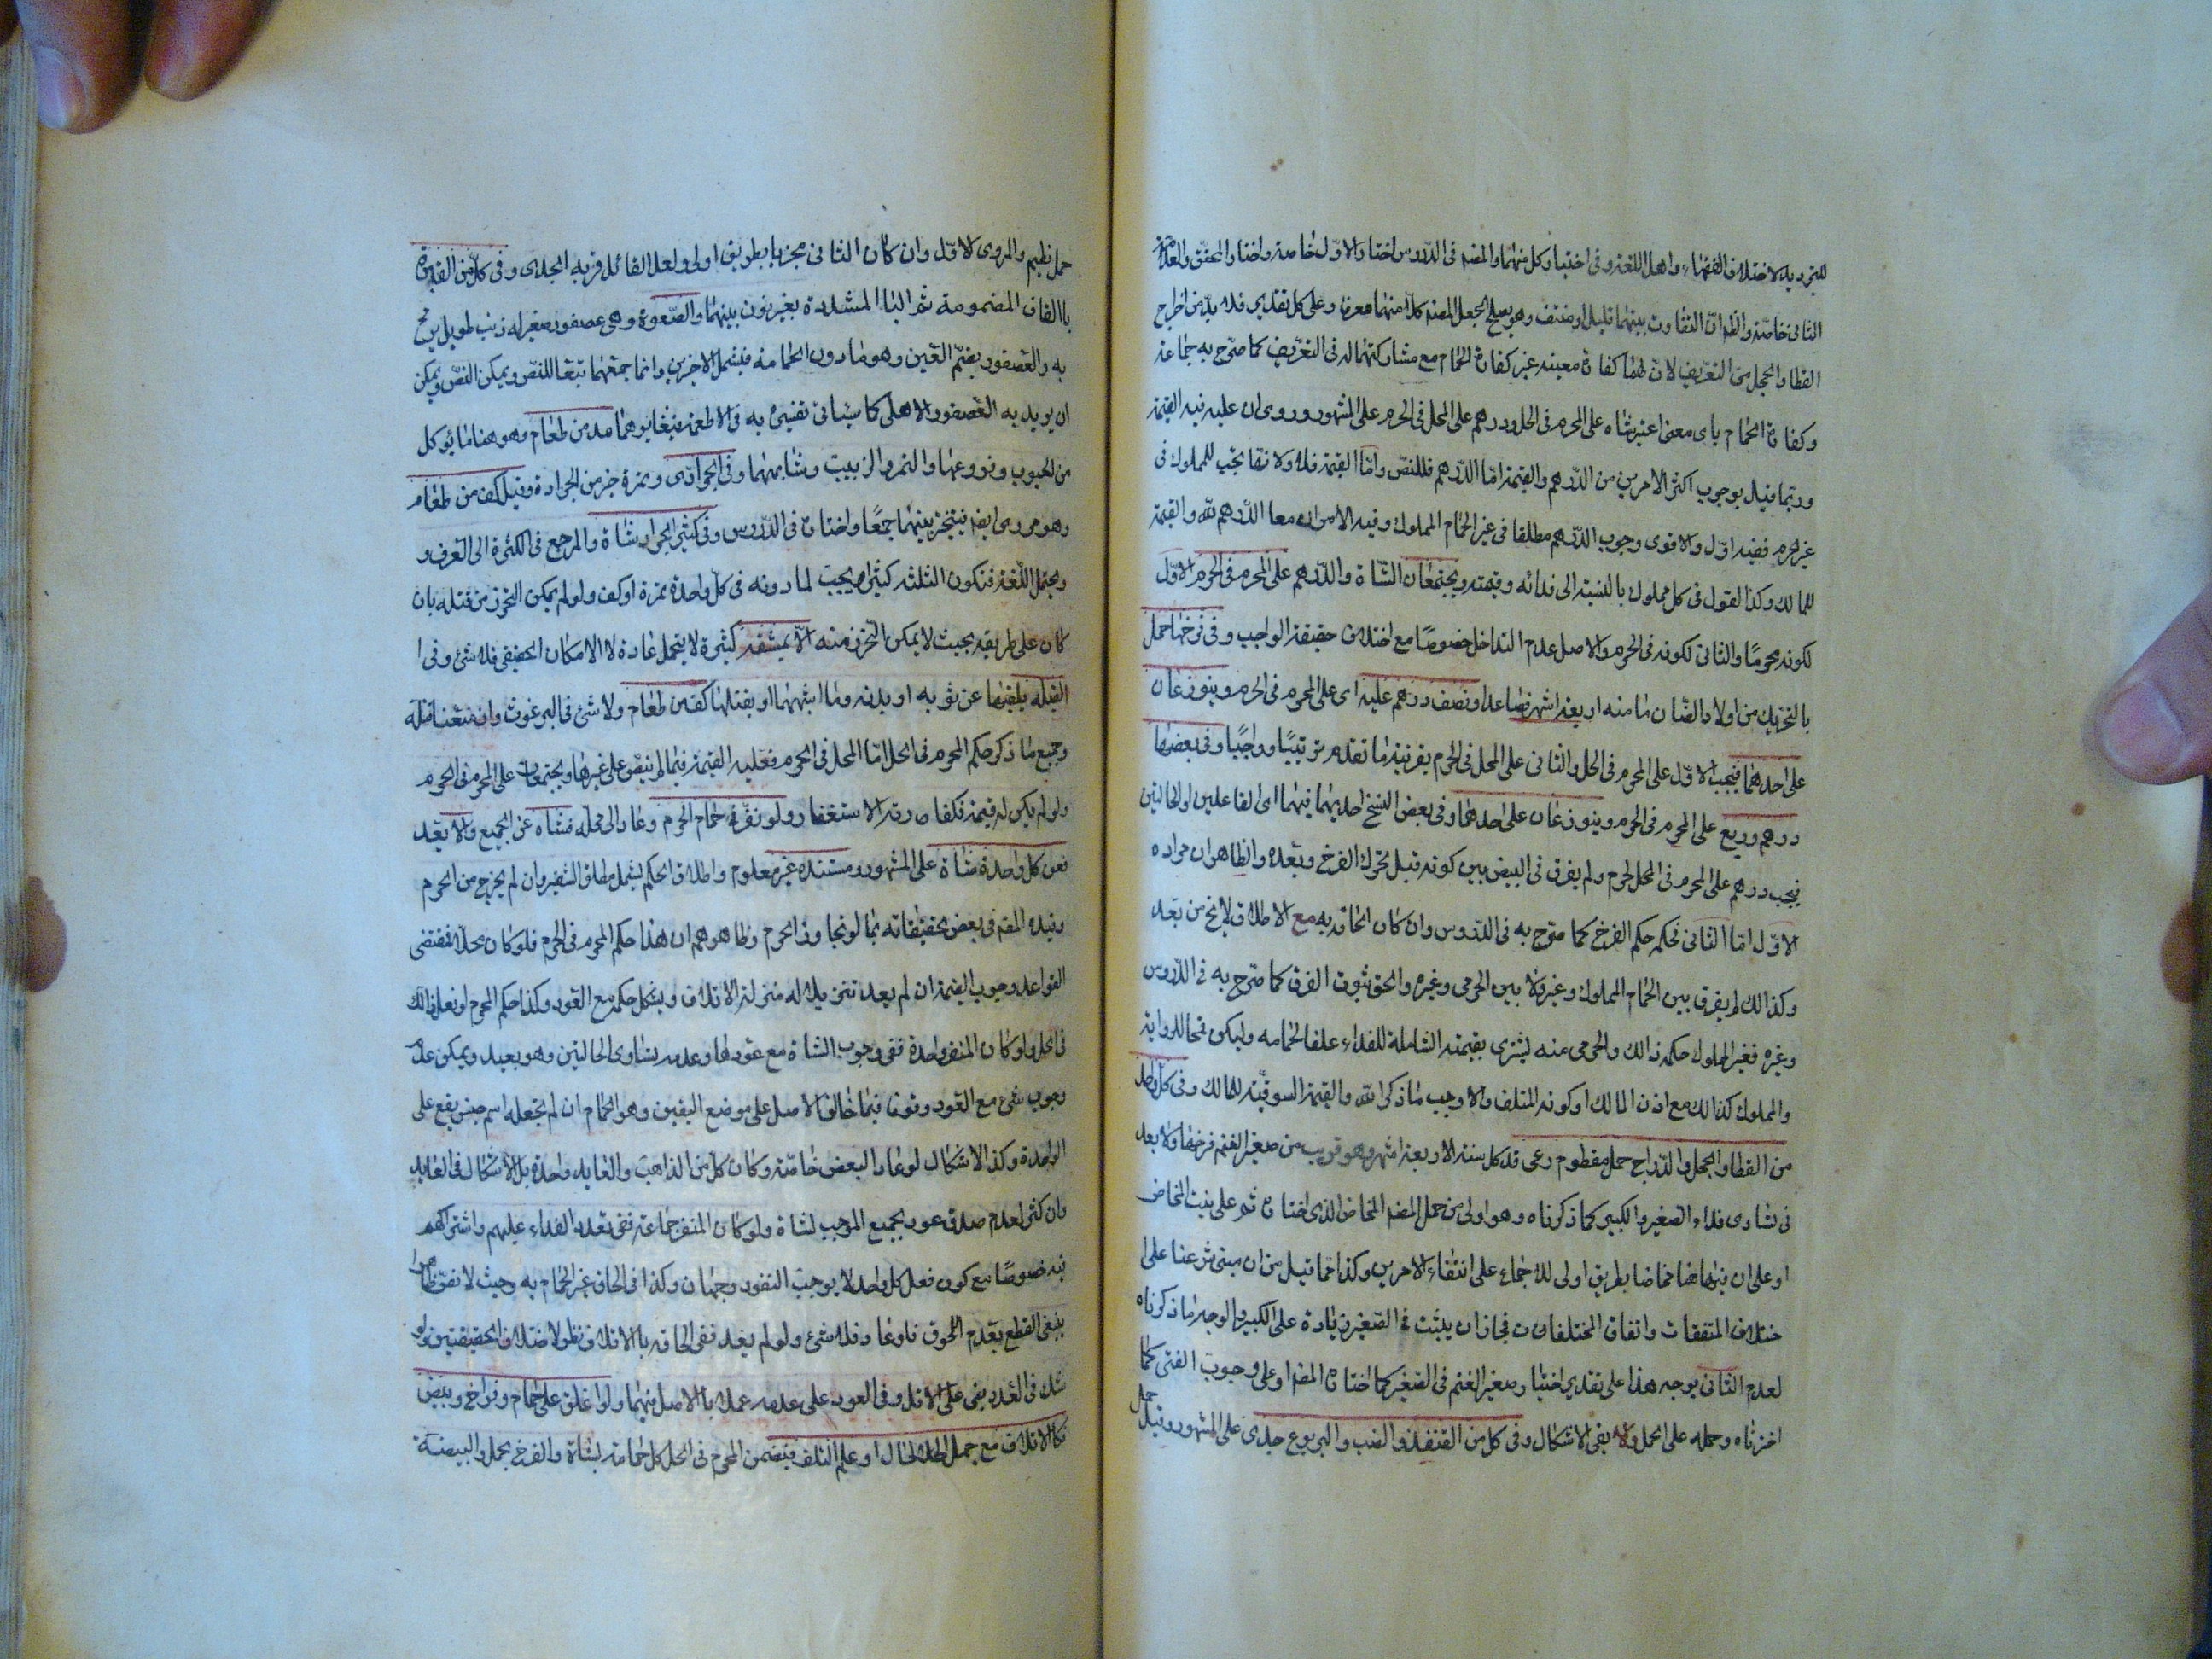 للترديد لاختلاف الفقهاء واهل اللغة وفى اختيار كل منهما والمصنف فى الدروس اختار الاول خاصة واختار المحقق والعلامة
الثانى خاصة والظ ان التفاوت بينهما قليل او منتف وهو يصلح لجعل المصنف كلا منهما معرفا وعلى كل تقدير فلا بد من اخراج
القطا والحجل من التعريف لان لهما كفارة معينة غير كفارة الحمام مع مشاركتهما له فى التعريف كما صرح به جماعة
وكفارة الحمام باى معنى اعتبر شاه على المحرم فى الحل ودرهم على المحل فى الحرم على المشهور وروى ان عليه فيه القيمة
وربما قيل بوجوب اكثر الامرين من الدرهم والقيمة اما الدرهم فللنص واما القيمة فلانها تجب للمملوك فى
غير الحرم ففيه اول والاقوى وجوب الدرهم مطلقا فى غير الحمام المملوك وفيه الامران معا الدرهم لله والقيمة
للمالك وكذا القول فى كل مملوك بالنسبة الى فدائه وقيمته ويجتمعان الشاة والدرهم على المحرم فى الحرم الاول
لكونه محرما والثانى لكونه فى الحرم والاصل عدم التداخل خصوصا مع اختلاف حقيقة الواجب وفى فرخها حمل
بالتحريك من اولاد الضان ما سنه اربعة اشهر فصاعدا ونصف درهم عليه اى على المحرم فى الحرم ويتوزعان
على احدهما فيجب الاول على المحرم فى الحل والثانى على المحل فى الحرم بقرينة ما تقدم ترتيبا وواجبا وفى بيضها
درهم وربع على المحرم فى الحرم ويتوزعان على احدهما وفى بعض النسخ احديهما فيهما اى الفاعلين او الحالتين
فيجب درهم على المحرم فى الحل لحرم ولم يفرق فى البيض بين كونه قبل تحرك الفرخ وبعده والظاهر ان مراده
الاول اما الثانى فحكمه حكم الفرخ كما صرح به فى الدروس وان كان الحاقه به مع الاطلاق لا يخ من بعد
وكذالك لم يفرق بين الحمام المملوك وغيره ولا بين الحرمى وغيره والحق ثبوت الفرق كما صرح به فى الدروس
وغيره فغير المملوك حكمه ذالك والحرمى منه يشترى بقيمته الشاملة للفداء علفا لحمامه وليكن قمحا للرواية
والمملوك كذالك مع اذن المالك او كونه المتلف والا وجب ما ذكر لله والقيمة السوقية للمالك وفى كل واحد
من القطا والحجل والدراج حمل مفطوم رعى قد كمل سنه اربعة اشهر وهو قريب من صغير الغنم فى فرخها ولا بعد
فى تساوى فداء الصغير والكبير كما ذكرناه وهو اولى من حمل المصنف المخاض الذى اختاره ثم على بنت المخاض
او على ان فيهما هنا مخاضا بطريق اولى للاجماع على انتفاء الامرين وكذا مما قيل من ان مبنى شرعنا على ا
ختلاف المتفقات واتفاق المختلفات فجاز ان يثبت فى الصغير زيادة على الكبير والوجه ما ذكرناه
لعدم الثانى يوجه هذا على تقدير اختيار صغير الغنم فى الصغير كما اختاره المصنف او على وجوب الفتى كما
اخترناه وحمله على الحمل والا بقى الاشكال وفى كل من القنفذ والضب واليربوع جدى على المشهور وقيل حمل
حمل فطيم والمروى الاول وان كان الثانى مجزيا بطريق اولى ولعل القائل فربه الجدى وفى كل من القبرة
بالقاف المضمومة ثم البا المشددة بغير نون بينهما والصعوة وهى عصفور صغير له ذنب طويل يرمح
به والعصفور بضم العين وهو ما دون الحمامة فيشمل الاخيرين وانما جمعهما تبعا للنص ويمكن
ان يريد به العصفور الاهلى كما سياتى تفسيره به فى الاطعمة فيغايرهما مد من طعام وهو هنا ما يؤكل
من الحبوب وفروعها والتمر والزبيب وشابههما وفى الجرادة تمرة وتمرة خير من الجرادة وقيل كف من طعام
وهو مروى ايض فيتخير بينهما جمعا واختاره فى الدروس وفى كثير الجراد شاة والمرجع فى الكثرة الى العرف و
ويحتمل اللغة فتكون الثلثة كثيرا ويجب لما دونه فى كل واحدة تمرة او كف ولو لم يمكن التحرز من قتله بان
كان على طريقه بحيث لا يمكن التحرز منه الا بمشقة كثيرة لا يتحمل عادة لا الامكان الحقيقى فلا شئ وفى ا
القملة يلقيها عن ثوبه او بدنه وما اشبههما او يقتلها كف من طعام ولا شئ فى البرغوث وان منعنا قتله
وجميع ما ذكر حكم المحرم فى الحل اما المحل فى الحرم فعليه القيمة فيما لم ينص على غيرها ويجتمعان على المحرم فى الحرم
ولو لم يكن له قيمة فكفارته الاستغفار ولو نفرة حمام الحرم وعاد الى محله فشاه عن الجميع والا يعد
فعن كل واحدة شاة على المشهور ومستنده غير معلوم واطلاق الحكم يشمل مطلق التنفير وان لم يخرج من الحرم
وقيده المصنف فى بعض تحقيقاته بما لو تجاوز الحرم وظاهرهم ان هذا حكم المحرم فى الحرم فلو كان محلا فمقتضى
القواعد وجوب القيمة ان لم يعد تنزيلا له منزلة الاتلاف ويشكل حكمه مع العود وكذا حكم المحرم لو فعل ذالك
فى الحل ولو كان المنفر واحدة ففى وجوب الشاة مع عودها وعدمه تساوى الحالتين وهو بعيد ويمكن عدم
وجوب شئ مع العود وقوفا فيما خالف الاصل على موضع اليقين وهو الحمام ان لم نجعله اسم جنس يقع على
الواحدة وكذا الاشكال لو عاد البعض خاصة وكان كل من الذاهب والعايد واحدة بل الاشكال فى العايد
وان كثر لعدم صدق عود الجميع الموجب لشاة ولو كان المنفر جماعة ففى تعدد الفداء عليهم واشتراكهم
فيه خصوصا مع كون فعل كل واحد لا يوجب النفور وجهان وكذا فى الحاق غير الحمام به وحيث لا نص ظاهرا
ينبغى القطع بعدم اللحوق فلو عاد فلا شئ ولو لم يعد ففى الحاقه بالاتلاف نظر لاختلاف الحقيقتين ولو
شك فى العدد بنى على الاقل وفى العود على عدمه عملا بالاصل فيهما ولو اغلق على حمام وفراخ وبيض
فكالاتلاف مع جهل الحال او علم التلف فيضمن المحرم فى الحل كل حمامة بشاة والفرخ بحمل والبيضة